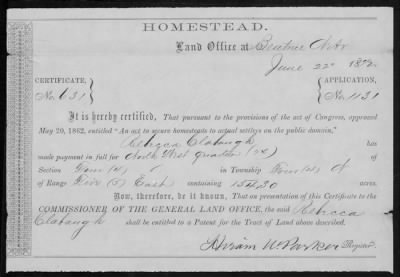 HOMESTEAD.
Land Office at Beatrice Neb
June 22d 1872.
CERTIFICATE, APPLICATION,
No. 631 No. 1131
It is hereby certified, That pursuant to the provisions of the act of Congress, approved
May 20, 1862, entitled "An act to secure homesteads to actual settlers on the public domain,"
Rebecca Clabaugh has
made payment in full for North West quarter (¼) of
Section Four (4) in Township Four (4) N
of Range Five (5) East containing 154.20 acres.
Now, therefore, be it known, That on presentation of this Certificate to the
COMMISSIONER OF THE GENERAL LAND OFFICE, the said Rebecca
Clabaugh shall be entitled to a Patent for the Tract of Land above described.
Hiram W Parker Register.